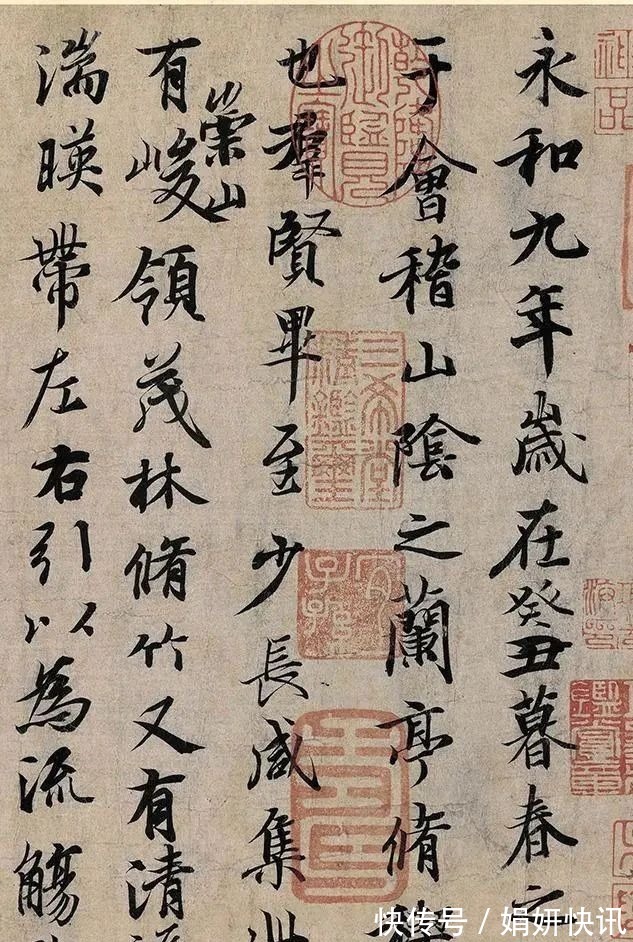 永和九年歲在癸丑暮春之
于會稽山陰之蘭亭脩
也羣賢畢至少長咸集
有崇山峻領茂林脩竹又有清
湍暎帶左右引以為流觴
三希堂
精鑑璽
宜子孫
快传号 / 娟妍快讯